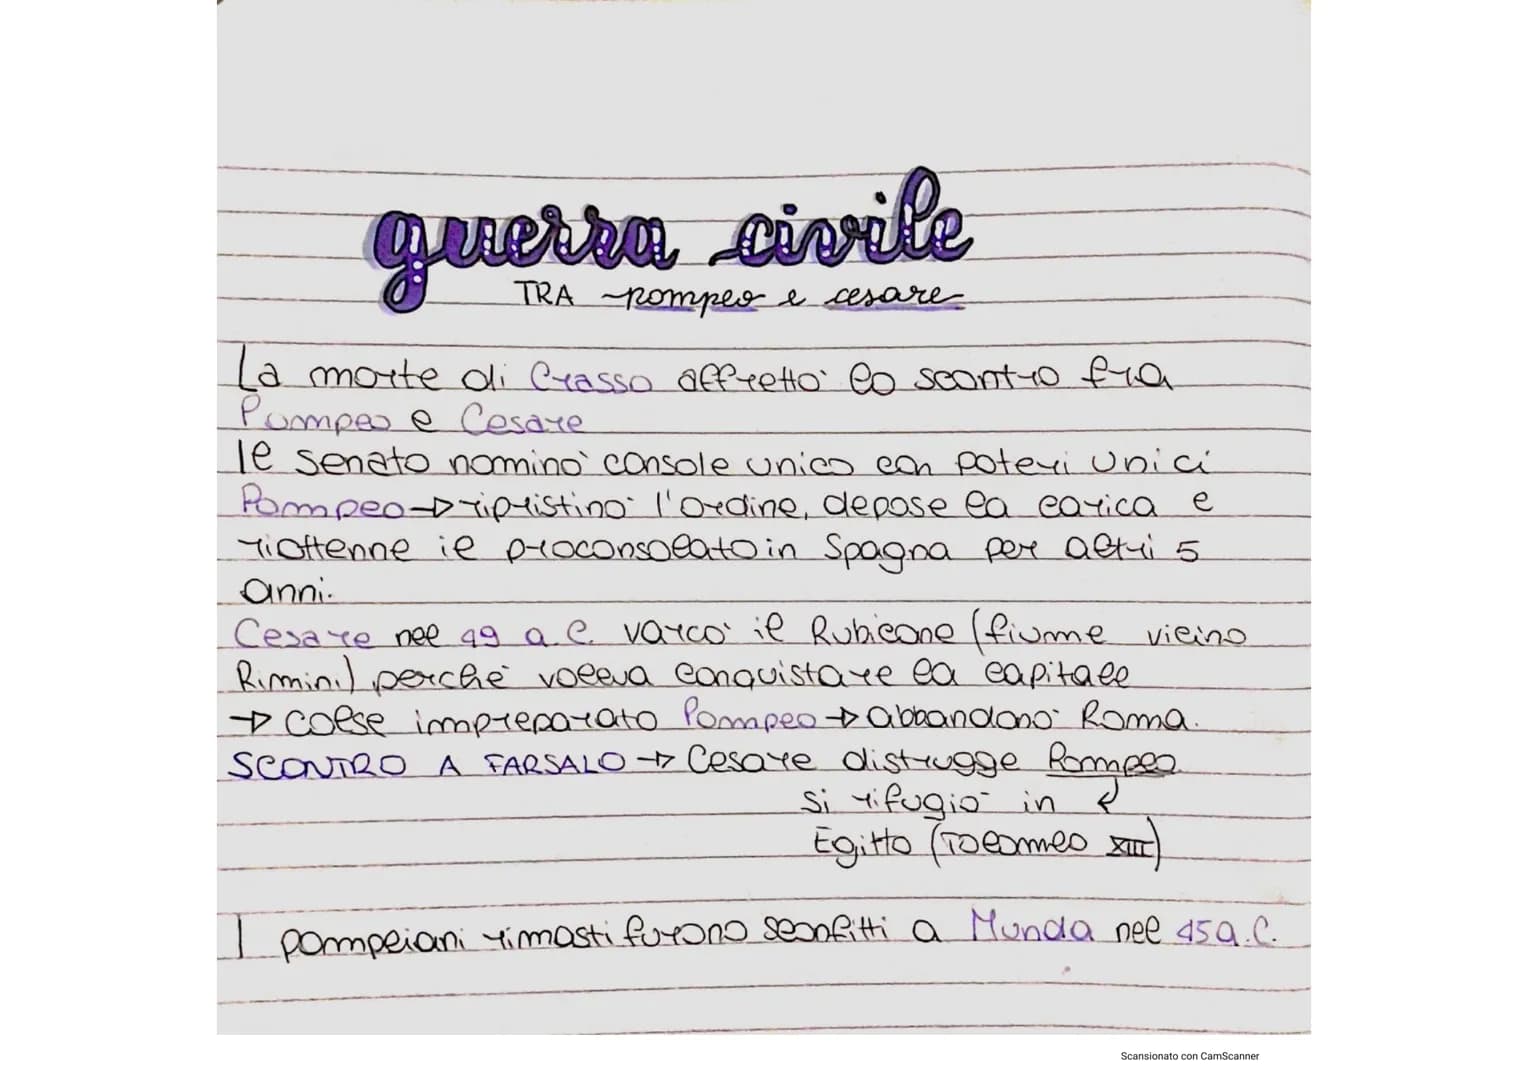 guerra civile
TRA pompeo e cesare
La morte di Crasso affrettò lo scontro fra
Pompeo e Cesare
Il senato nominò console unico con poteri unici
Pompeo → ripristinò l'ordine, depose la carica e
riottenne il proconsolato in Spagna per altri 5
anni.
Cesare nel 49 a.C. varcò il Rubicone (fiume vicino
Rimini) perchè voleva conquistare la capitale
→ colse impreparato Pompeo → abbandonò Roma.
SCONTRO A FARSALO → Cesare distrugge Pompeo
si rifugiò in ↲
Egitto (Tolomeo XIII)
I pompeiani rimasti furono sconfitti a Munda nel 45 a.C.
Scansionato con CamScanner